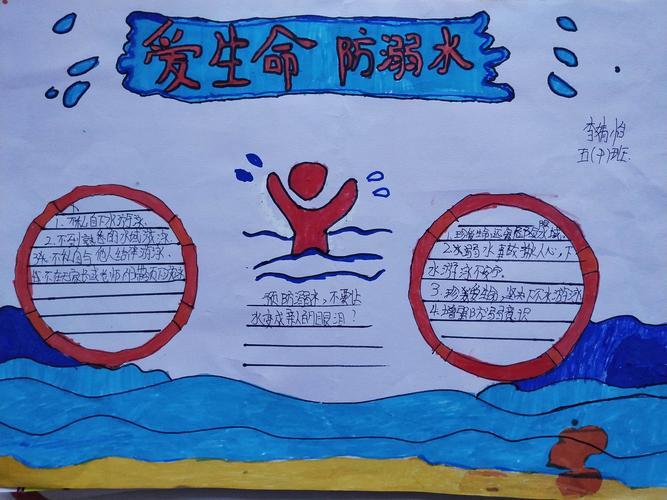 爱生命 防溺水
李倩怡
五(十)班
1.不私自下水游泳
2.不到熟悉的水域游泳
3.不私自与他人结伴游泳.
4.不在无家长或老师带
预防溺水,不要让
水变成亲人的眼泪?
1.珍爱生命远离危险水域
2.溺水事故揪人心,下
水游泳不
3.珍爱生命,坚决不下水游泳
4.增需防溺意识